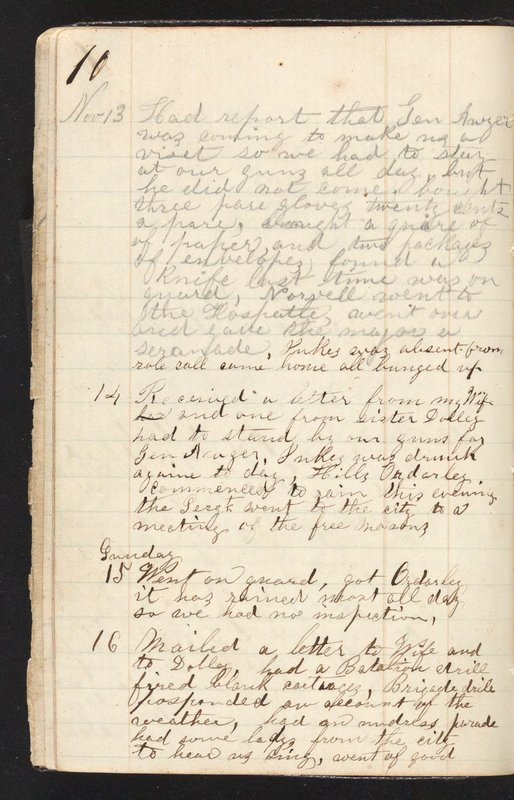 10
Nov 13 Had report that Gen Auger
was coming to make us a
viset so we had to stay
at our guns all day, but
he did not come, bought
three pare gloves twenty cents
a pare, bought a quire of
of paper, and two packages
of envelopes, found a
Knife last time was on
guard, Norvell went to
the Hospatle, went over
and gave the major a
seranade, Jukes was absent from
role call came home all bunged up
14 Received a letter from my Wife
and one from sister Dolley
had to stand by our guns for
Gen Auger, Jukes was drunk
againe to day, Hills Ordarley
commences to rain this evening
the Sergt went to the city to a
meeting of the free masons
Sunday
15 Went on guard, got Ordarley
it has rained most all day
so we had no inspection,
16 Mailed a letter to Wife and
to Dolley, had a Batalion drill
fired blank catrages, Brigade drile
posponded on account of the
weather, had an undress parade
had some ladys from the city
to hear us sing, went of good